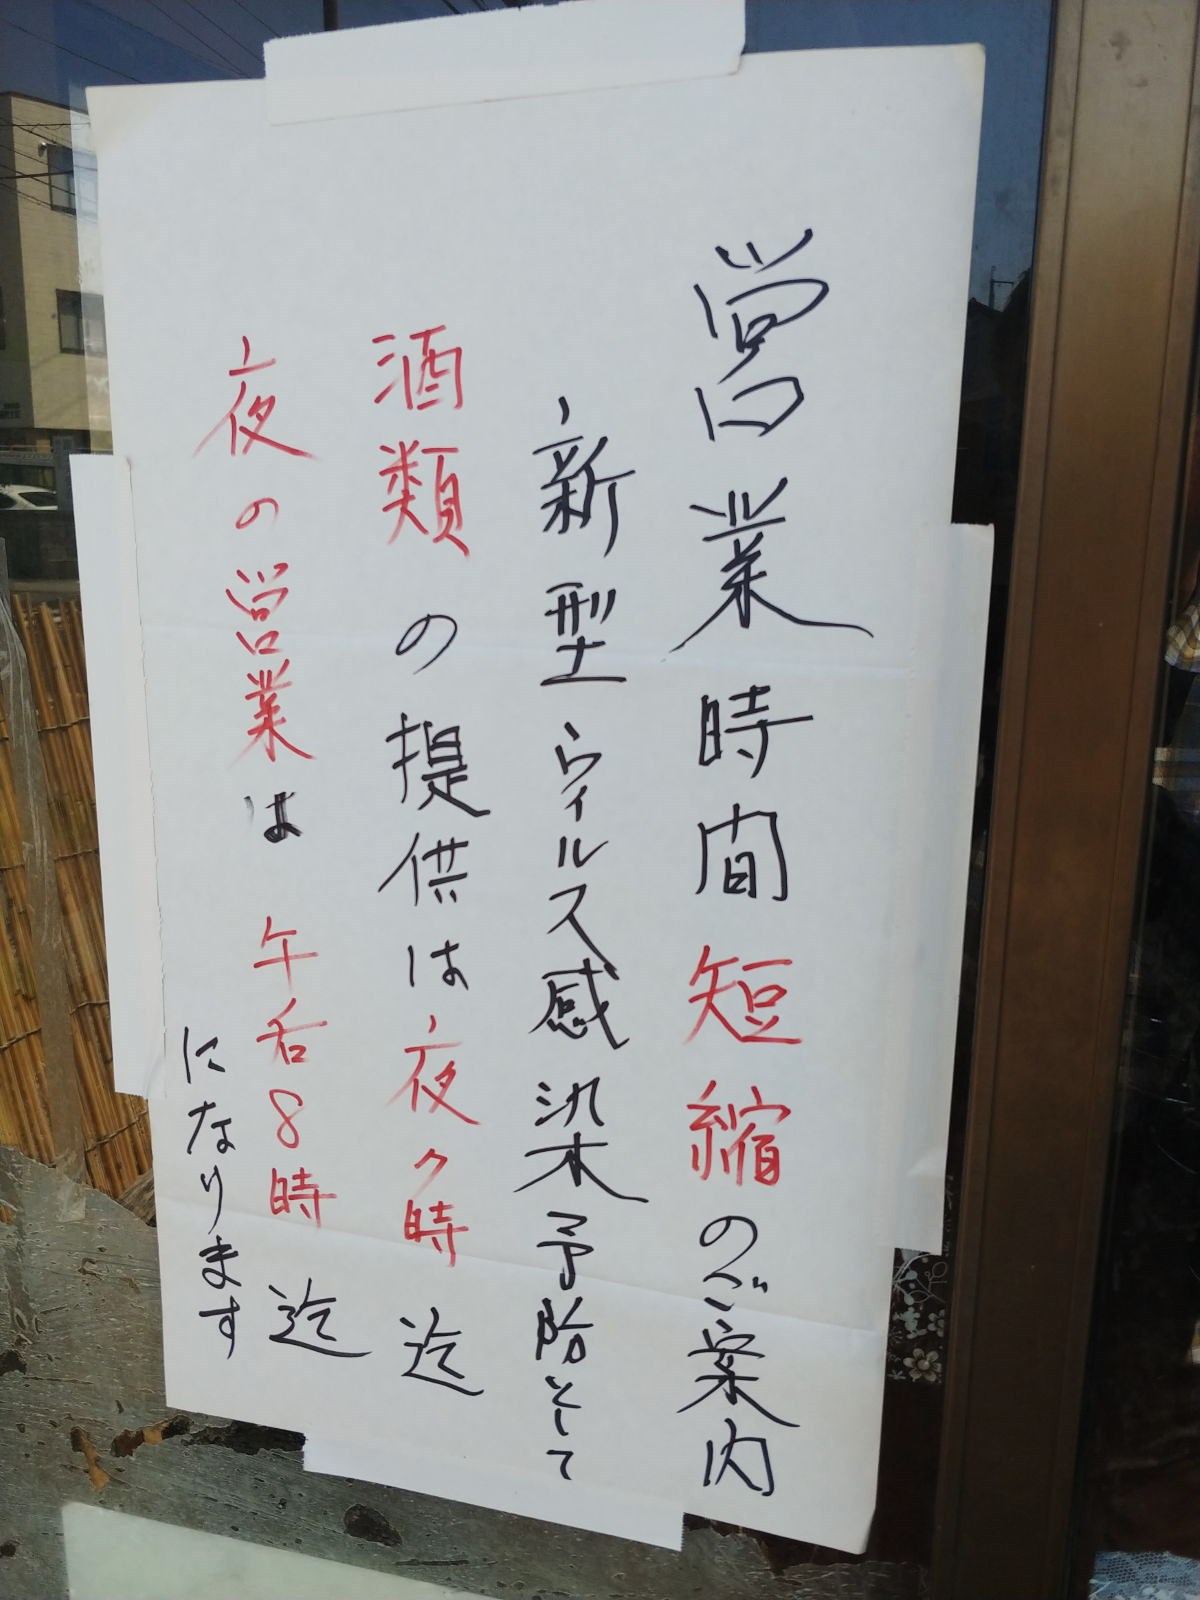 営業時間短縮のご案内
新型ウィルス感染予防として
酒類の提供は夜7時迄
夜の営業は 午后8時迄
になります